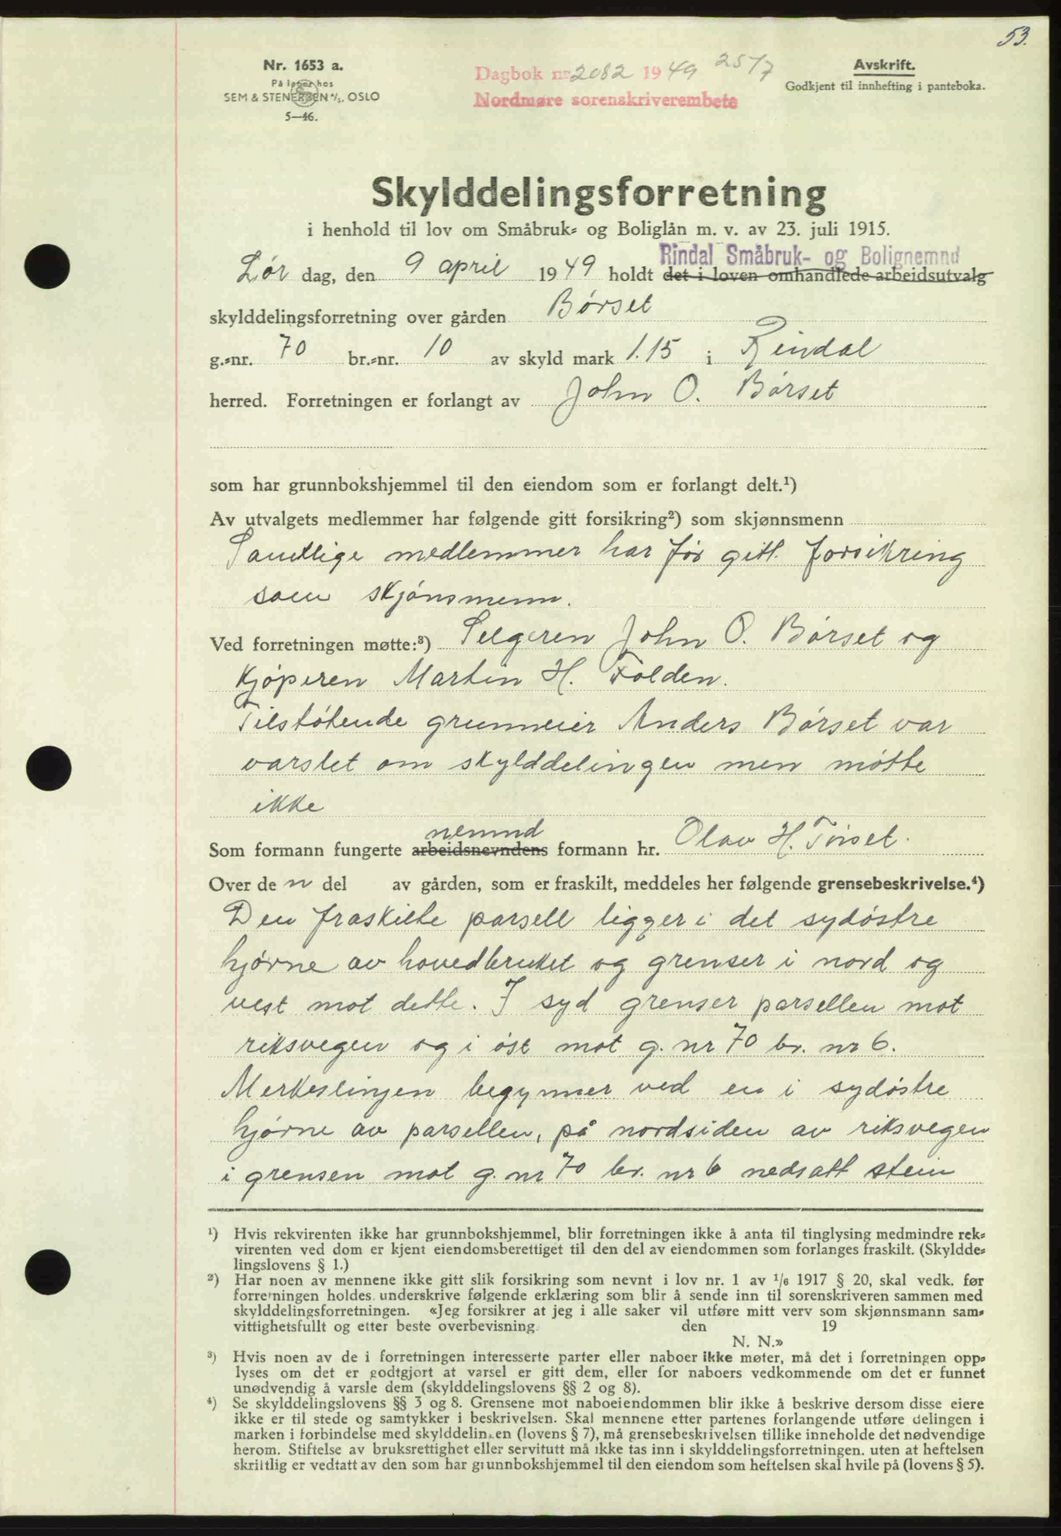 53.
Nr. 1653 a.
På lager hos
SEM & STENERSEN A/S. OSLO
5—46.
Dagbok nr 2082 1949 25/7
Nordmøre sorenskriverembete
Avskrift.
Godkjent til innhefting i panteboka.
Skylddelingsforretning
i henhold til lov om Småbruk- og Boliglån m. v. av 23. juli 1915.
Rindal Småbruk- og Bolignemnd
Lør dag, den 9 april 1949 holdt det i loven omhandlede arbeidsutvalg
skylddelingsforretning over gården Børset
g.-nr. 70 br.-nr. 10 av skyld mark 1.15 i Rindal
herred. Forretningen er forlangt av John O. Børset
som har grunnbokshjemmel til den eiendom som er forlangt delt.¹)
Av utvalgets medlemmer har følgende gitt forsikring²) som skjønnsmenn
Samtlige medlemmer har før gitt forsikring
som skjønsmenn.
Ved forretningen møtte:³) Selgeren John O. Børset og
Kjøperen Martin H. Folden.
Tilstøtende grunneier Anders Børset var
varslet om skylddelingen men møtte
ikke
nemnd
Som formann fungerte arbeidsnevndens formann hr. Olav H. Tørset.
Over de n del av gården, som er fraskilt, meddeles her følgende grensebeskrivelse.⁴)
Den fraskilte parsell ligger i det sydøstre
hjørne av hovedbruket og grenser i nord og
vest mot dette. I syd grenser parsellen mot
riksvegen og i øst mot g. nr 70 br. nr 6.
Merkeslinjen begynner ved en i sydøstre
hjørne av parsellen, på nordsiden av riksvegen
i grensen mot g. nr 70 br. nr 6 nedsatt stein
¹) Hvis rekvirenten ikke har grunnbokshjemmel, blir forretningen ikke å anta til tinglysing medmindre rek-
virenten ved dom er kjent eiendomsberettiget til den del av eiendommen som forlanges fraskilt. (Skyldde-
lingslovens § 1.)
²) Har noen av mennene ikke gitt slik forsikring som nevnt i lov nr. 1 av 1/6 1917 § 20, skal vedk. før
forretningen holdes underskrive følgende erklæring som blir å sende inn til sorenskriveren sammen med
skylddelingsforretningen. «Jeg forsikrer at jeg i alle saker vil utføre mitt verv som skjønnsmann sam-
vittighetsfullt og etter beste overbevisning. den 19
N. N.»
³) Hvis noen av de i forretningen interesserte parter eller naboer ikke møter, må det i forretningen opp-
lyses om det er godtgjort at varsel er gitt dem, eller for naboers vedkommende om det er funnet
unødvendig å varsle dem (skylddelingslovens §§ 2 og 8).
⁴) Se skylddelingslovens §§ 3 og 8. Grensene mot naboeiendommen blir ikke å beskrive dersom disse eiere
ikke er til stede og samtykker i beskrivelsen. Skal mennene etter partenes forlangende utføre delingen i
marken i forbindelse med skylddelingen (lovens § 7), må grensebeskrivelsen tillike inneholde det nødvendige
herom. Stiftelse av bruksrettighet eller servitutt må ikke tas inn i skylddelingsforretningen, uten at heftelsen
skriftlig er vedtatt av den som har grunnbokshjemmel til den eiendom som heftelsen skal hvile på (lovens § 5).